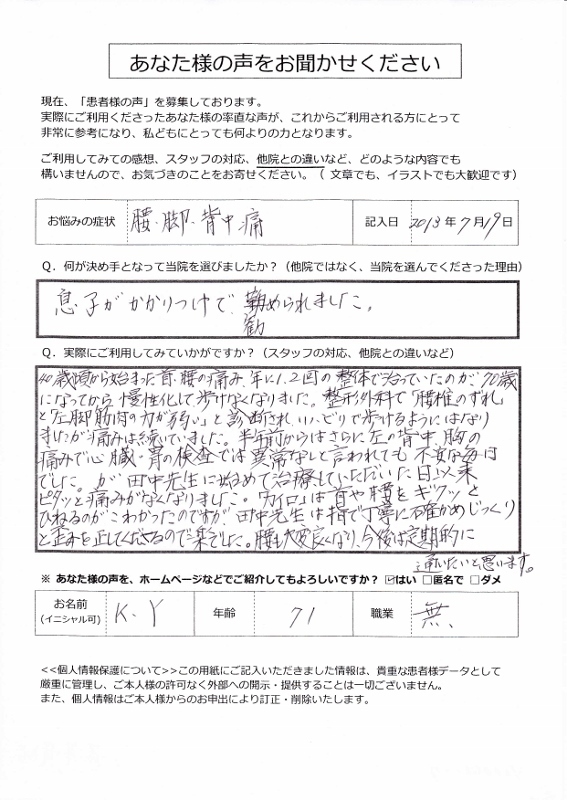 あなた様の声をお聞かせください
現在、「患者様の声」を募集しております。
実際にご利用くださったあなた様の率直な声が、これからご利用される方にとって
非常に参考になり、私どもにとっても何よりの力となります。
ご利用してみての感想、スタッフの対応、他院との違いなど、どのような内容でも
構いませんので、お気づきのことをお寄せください。（ 文章でも、イラストでも大歓迎です）
お悩みの症状 腰、脚、背中痛 記入日 2013年7月19日
Q．何が決め手となって当院を選びましたか？（他院ではなく、当院を選んでくださった理由）
息子がかかりつけで、勧められました。
勧
Q．実際にご利用してみていかがですか？（スタッフの対応、他院との違いなど）
40歳頃から始まった首、腰の痛み、年に1、2回の整体で治っていたのが、70歳
になってから慢性化して歩けなくなりました。整形外科で「腰椎のずれ」
と「左脚筋肉の力が弱い」と診断され、いいどりで歩けるようにはなり
ましたが痛みは続いていました。半年前からはさらに左の背中、胸の
痛みで心臓、胃の検査では異常なしと言われても不安な毎日
でした。が、田中先生に始めて治療していただいた日以来
ピタッと痛みがなくなりました。「カイロ」は首や腰をギクッと
ひねるのがこわかったのですが、田中先生は指で丁寧に確かめじっくり
と歪みを正してくださるので楽でした。腰も大変良くなり、今後は定期的に
通いたいと思います。
※ あなた様の声を、ホームページなどでご紹介してもよろしいですか？ ☑はい □匿名で □ダメ
お名前 (イニシャル可) K、Y 年齢 71 職業 無、
<<個人情報保護について>>この用紙にご記入いただきました情報は、貴重な患者様データとして
厳重に管理し、ご本人様の許可なく外部への開示・提供することは一切ございません。
また、個人情報はご本人様からのお申出により訂正・削除いたします。